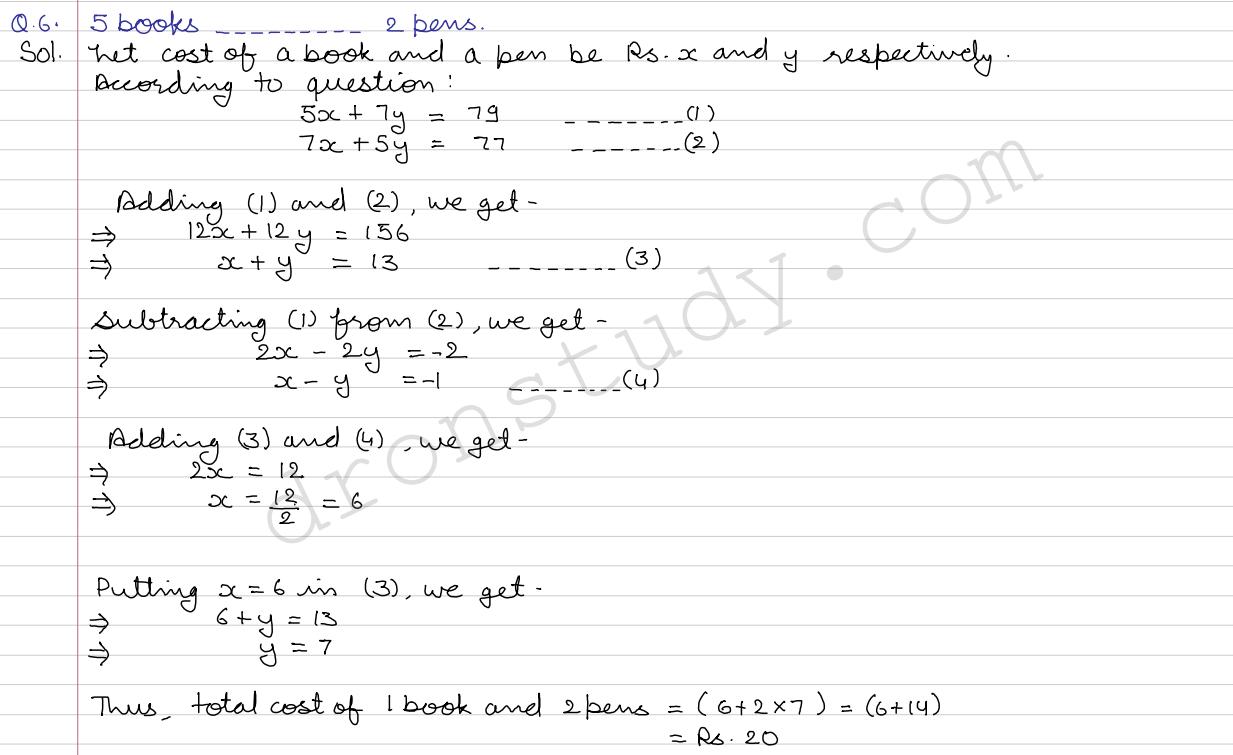 Q.6. 5 books _ _ _ _ _ _ _ _ _ 2 pens.
Sol. Let cost of a book and a pen be Rs. x and y respectively.
According to question:
5x + 7y = 79 _ _ _ _ _ _ _ (1)
7x + 5y = 77 _ _ _ _ _ _ _ (2)
Adding (1) and (2), we get -
⇒ 12x + 12y = 156
⇒ x + y = 13 _ _ _ _ _ _ _ _ (3)
Subtracting (1) from (2), we get -
⇒ 2x - 2y = -2
⇒ x - y = -1 _ _ _ _ _ _ _ _ (4)
Adding (3) and (4), we get -
⇒ 2x = 12
⇒ x = 12/2 = 6
Putting x = 6 in (3), we get -
⇒ 6 + y = 13
⇒ y = 7
Thus, total cost of 1 book and 2 pens = (6 + 2 × 7) = (6 + 14)
= Rs. 20
dronstudy.com